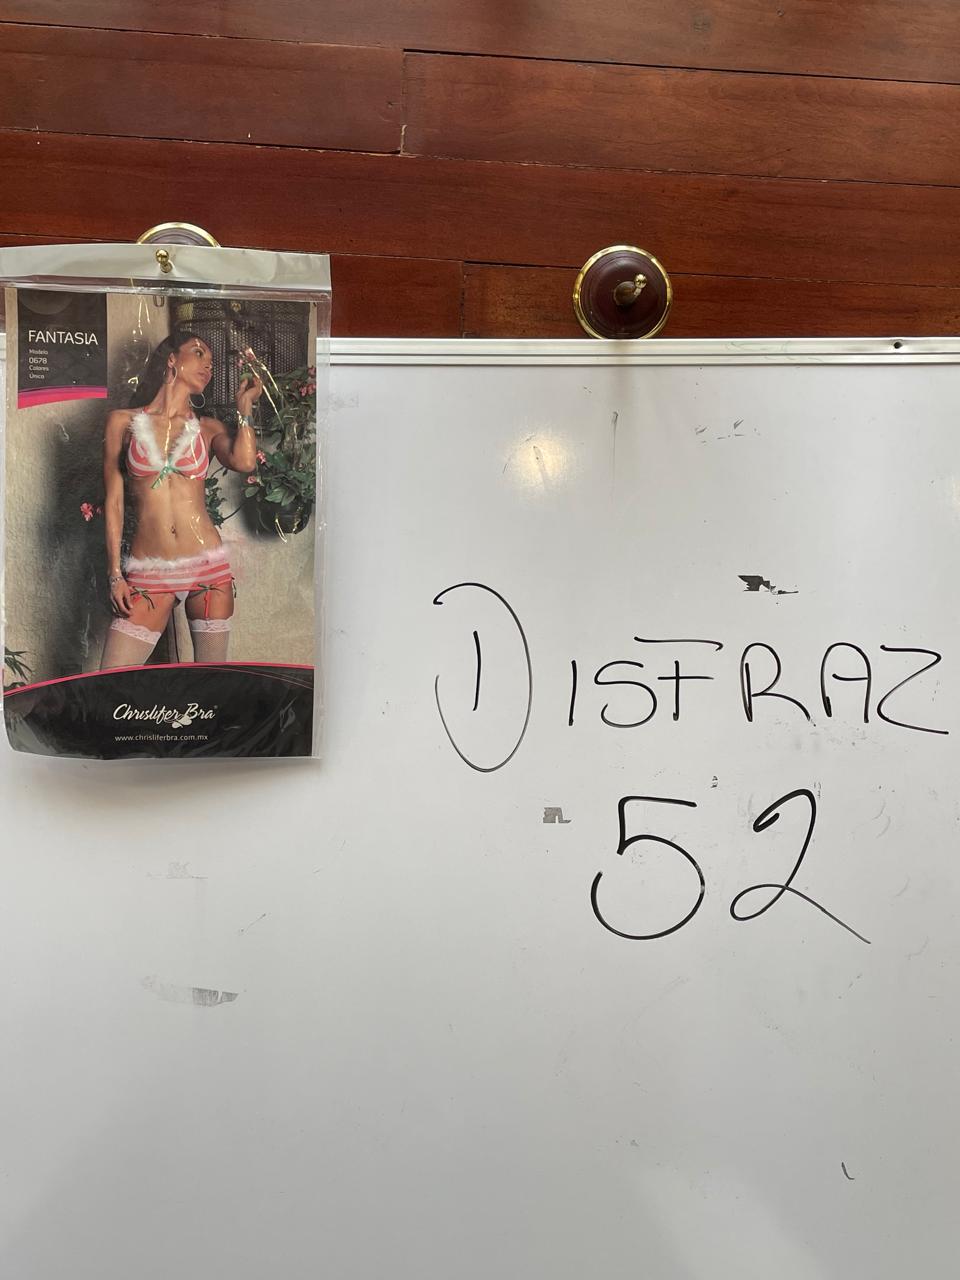 FANTASIA
Modelo
0678
Colores
Único
Chrislifer Bra®
www.chrisliferbra.com.mx
DISFRAZ
52